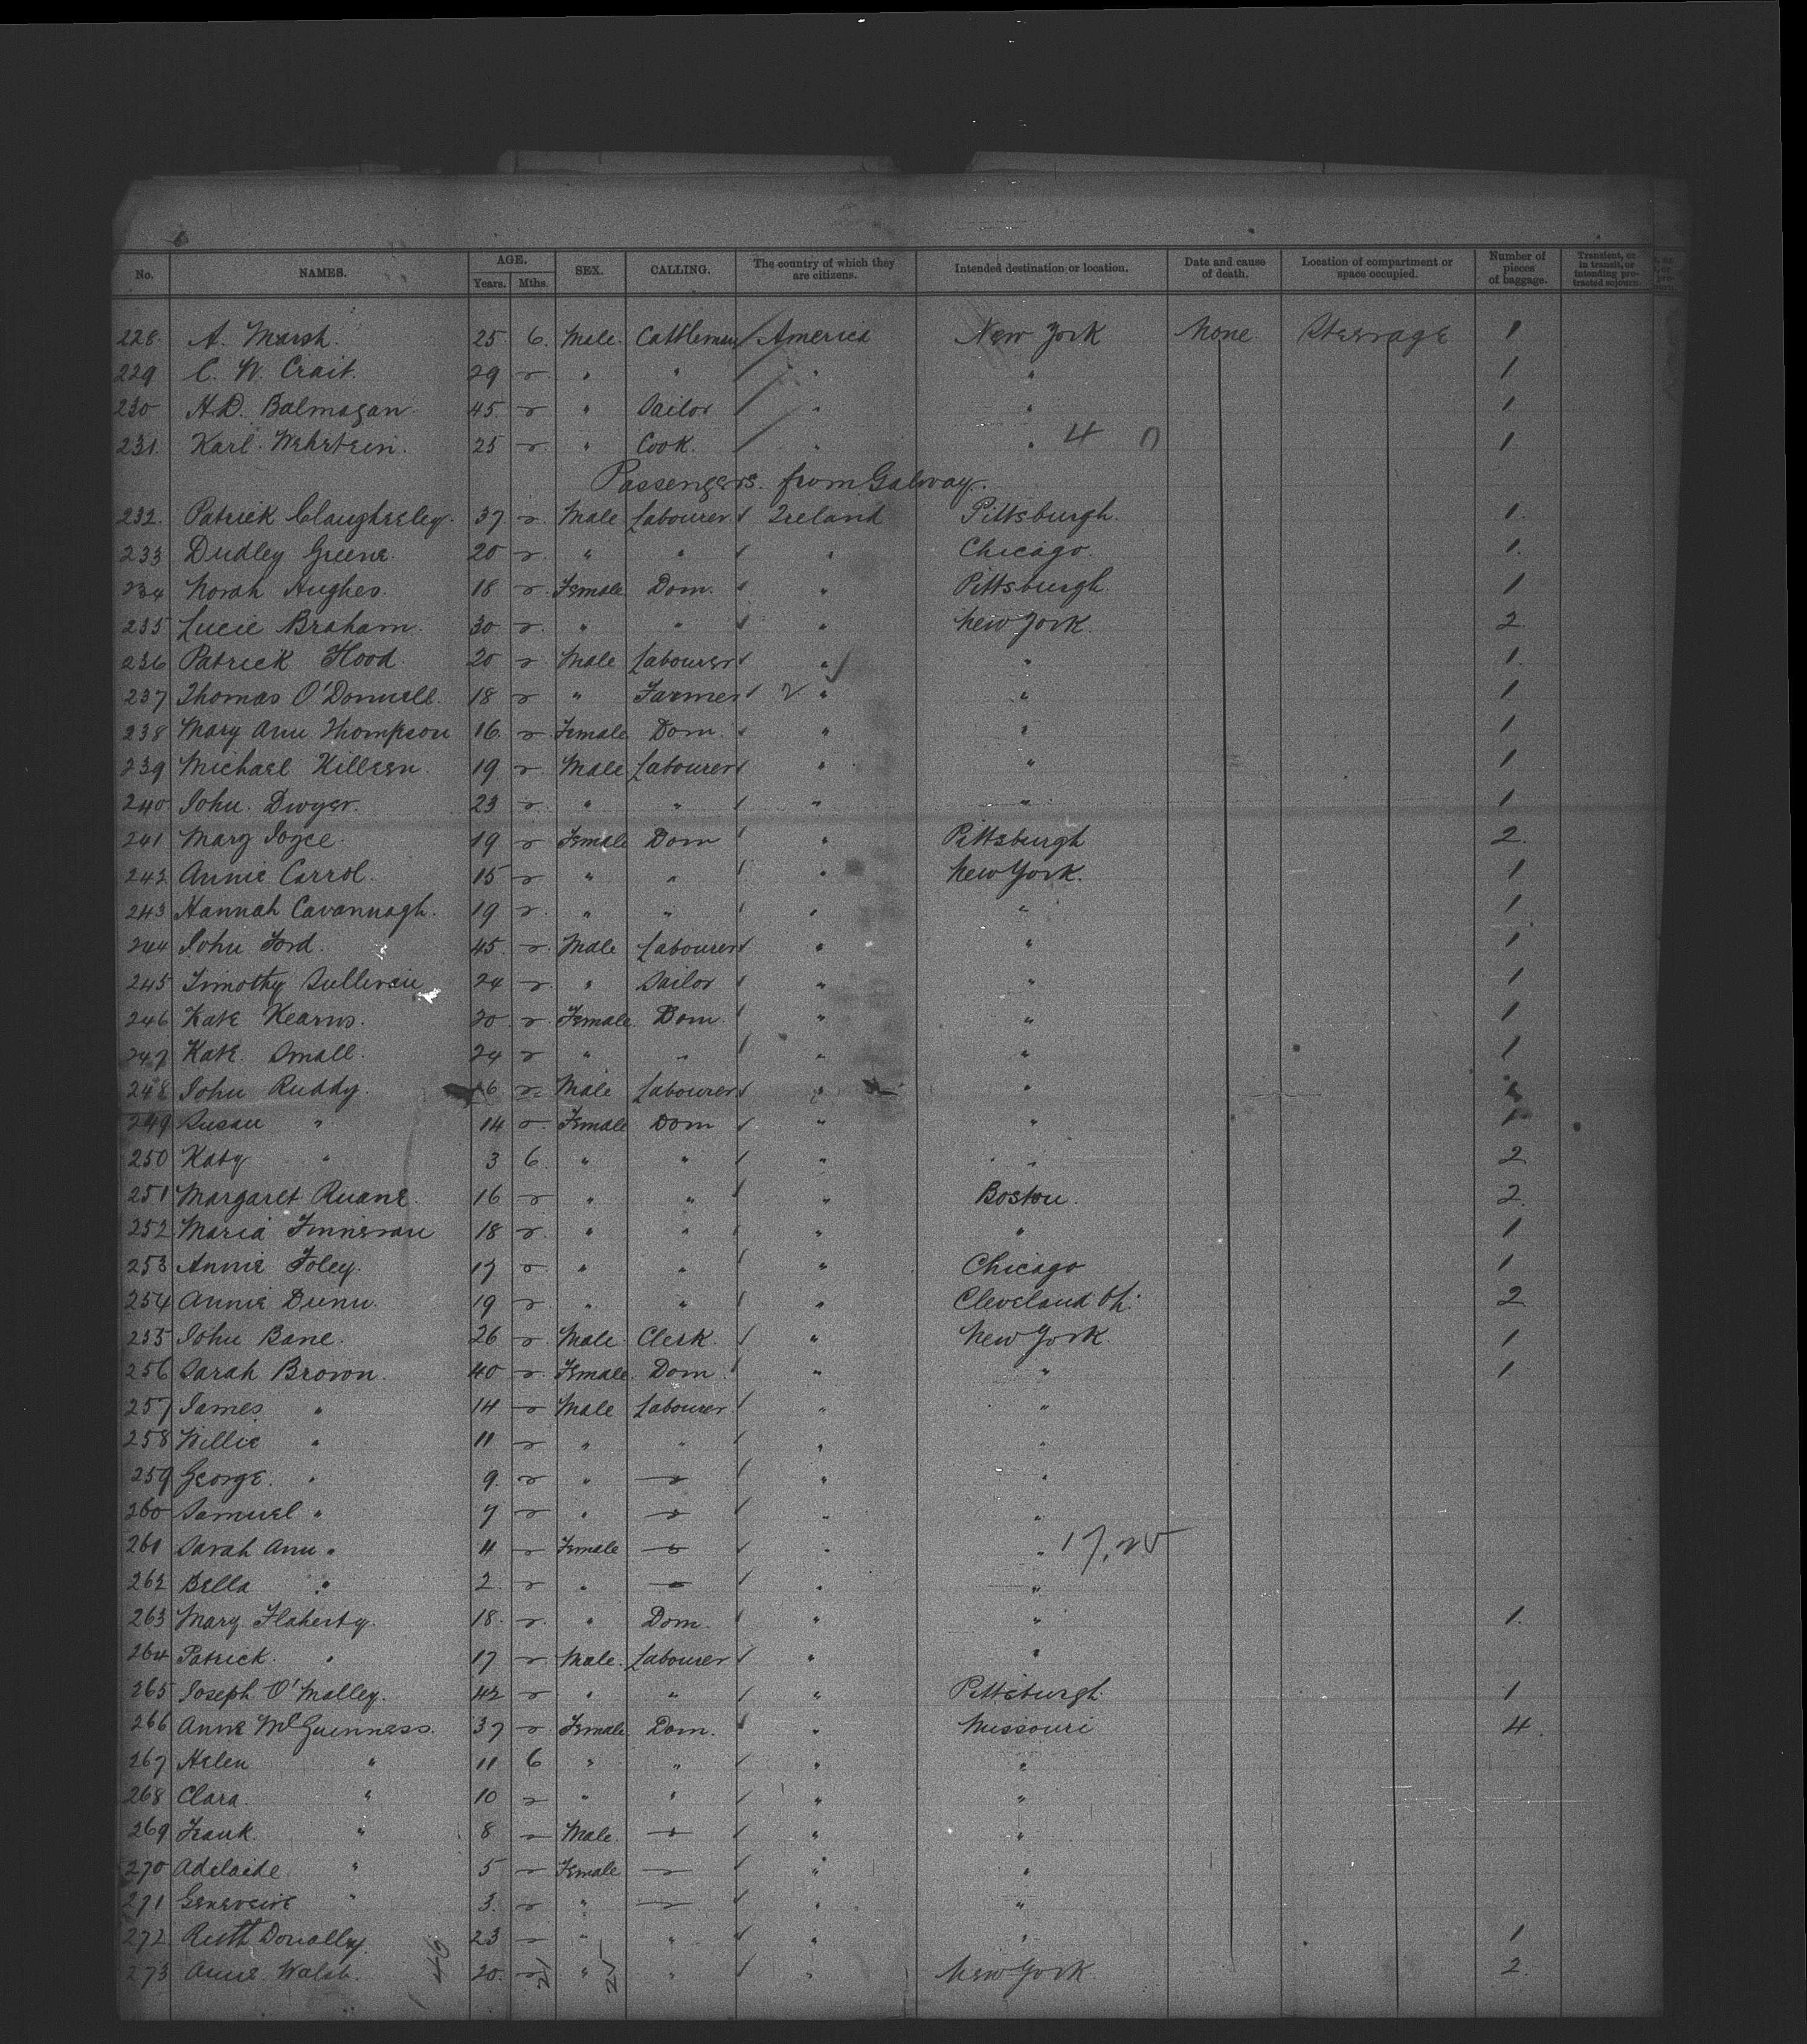 No. NAMES. AGE. Years. Mths. SEX. CALLING. The country of which they are citizens. Intended destination or location. Date and cause of death. Location of compartment or space occupied. Number of pieces of baggage. Transient, or in transit, or intending protracted sojourn.
228. A. Marsh. 25. 6. Male. Cattleman America New York None Steerage 1
229 C. W. Crait. 29 " " " " 1
230 H.D. Balmagan. 45. " Sailor " " 1
231. Karl. Wehrtein. 25 " Cook. " " 4 0 1
Passengers from Galway.
232. Patrick Claughreley. 37 Male Labourer Ireland Pittsburgh. 1.
233 Dudley Greene. 20 " " " Chicago. 1.
234 Norah Hughes. 18 Female Dom. " Pittsburgh. 1
235 Lucie Braham. 30 " " " New York. 2
236 Patrick Flood. 20 Male Labourer " " 1.
237 Thomas O'Donnell. 18 " Farmer " " 1
238 Mary Ann Thompson 16 Female Dom. " " 1
239 Michael Killeen. 19 Male Labourer " " 1
240 John Dwyer. 23 " " " " 1
241 Mary Joyce. 19 Female Dom " Pittsburgh 2.
242 Annie Carrol. 15 " " " New York. 1
243 Hannah Cavannagh. 19 " " " " 1
244 John Ford. 45 Male Labourer " " 1
245 Timothy Sullivan 24 " Sailor " " 1
246 Kate Kearns. 20 Female Dom. " " 1
247 Kate Small. 24 " " " " 1
248 John Ruddy. 6 Male Labourer " "
249 Susan " 14 Female Dom " " 1
250 Katy " 3 6. " " " " 2
251 Margaret Ruane. 16 " " " Boston. 2
252 Maria Finneran 18 " " " " 1
253 Annie Foley. 17 " " " Chicago 1
254 Annie Dunn. 19 " " " Cleveland Oh. 2
255 John Bane. 26 Male Clerk. " New York. 1
256 Sarah Brown. 40 Female Dom. " " 1
257 James " 14 Male Labourer " "
258 Willie " 11 " " " "
259 George. " 9. " " "
260 Samuel " 7 " " "
261 Sarah Ann " 4 Female " " 17.25
262 Bella " 2. " " "
263 Mary Flaherty. 18. " Dom. " " 1.
264 Patrick. " 17 Male. Labourer " "
265 Joseph O'Malley. 42 " " " Pittsburgh. 1
266 Anne McGuinness. 37 Female Dom. " Missouri 4.
267 Helen " 11 6 " " " "
268 Clara. " 10 " " " "
269 Frank. " 8 Male. " "
270 Adelaide " 5 Female " "
271 Genevieve " 3. " " "
272 Ruth Donolly 23 " " " " 1
273 Anne Walsh. 20. " " " New York 2.